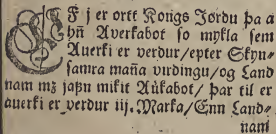 EF j er ortt Kongs Jördu þa a
hñ Averkabot so mykla sem
Auerki er verdur/epter Skyn-
samra maña virdingu/og Land
nam mz jafn mikit Aukabot/ Þar til er
auerki er verdur iij. Marka/Enn Land-
nam